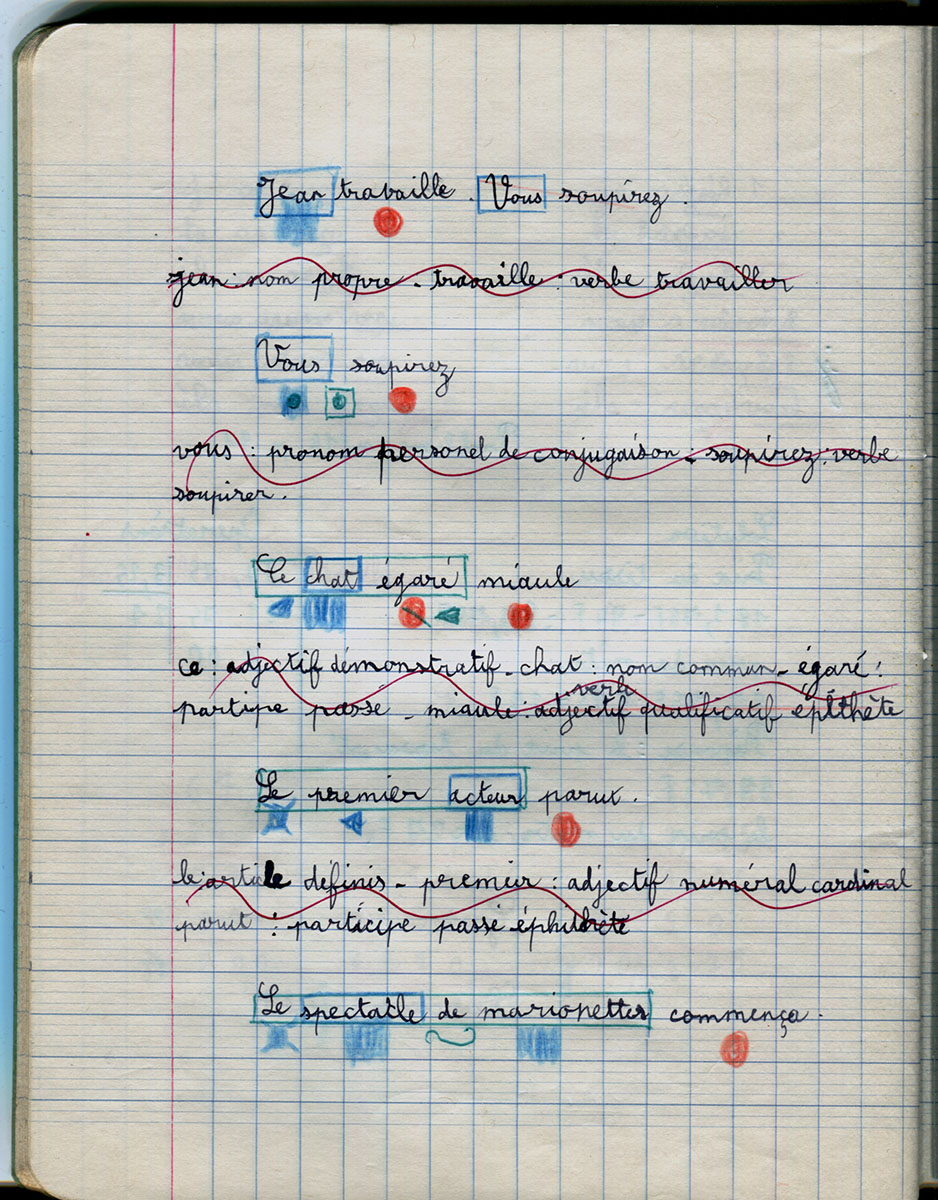 Jean travaille. Vous soupirez.
jean : nom propre - travaille : verbe travailler
Vous soupirez
vous : pronom personel de conjugaison - soupirez : verbe
soupirer.
Ce chat égaré miaule
ce : adjectif démonstratif - chat : nom commun - égaré :
verbe
partipe passe - miaule : adjectif qualificatif épithète
Le premier acteur parut.
le : article définis - premier : adjectif numéral cardinal
parut : participe passé éphithète
Le spectacle de marionettes commença.